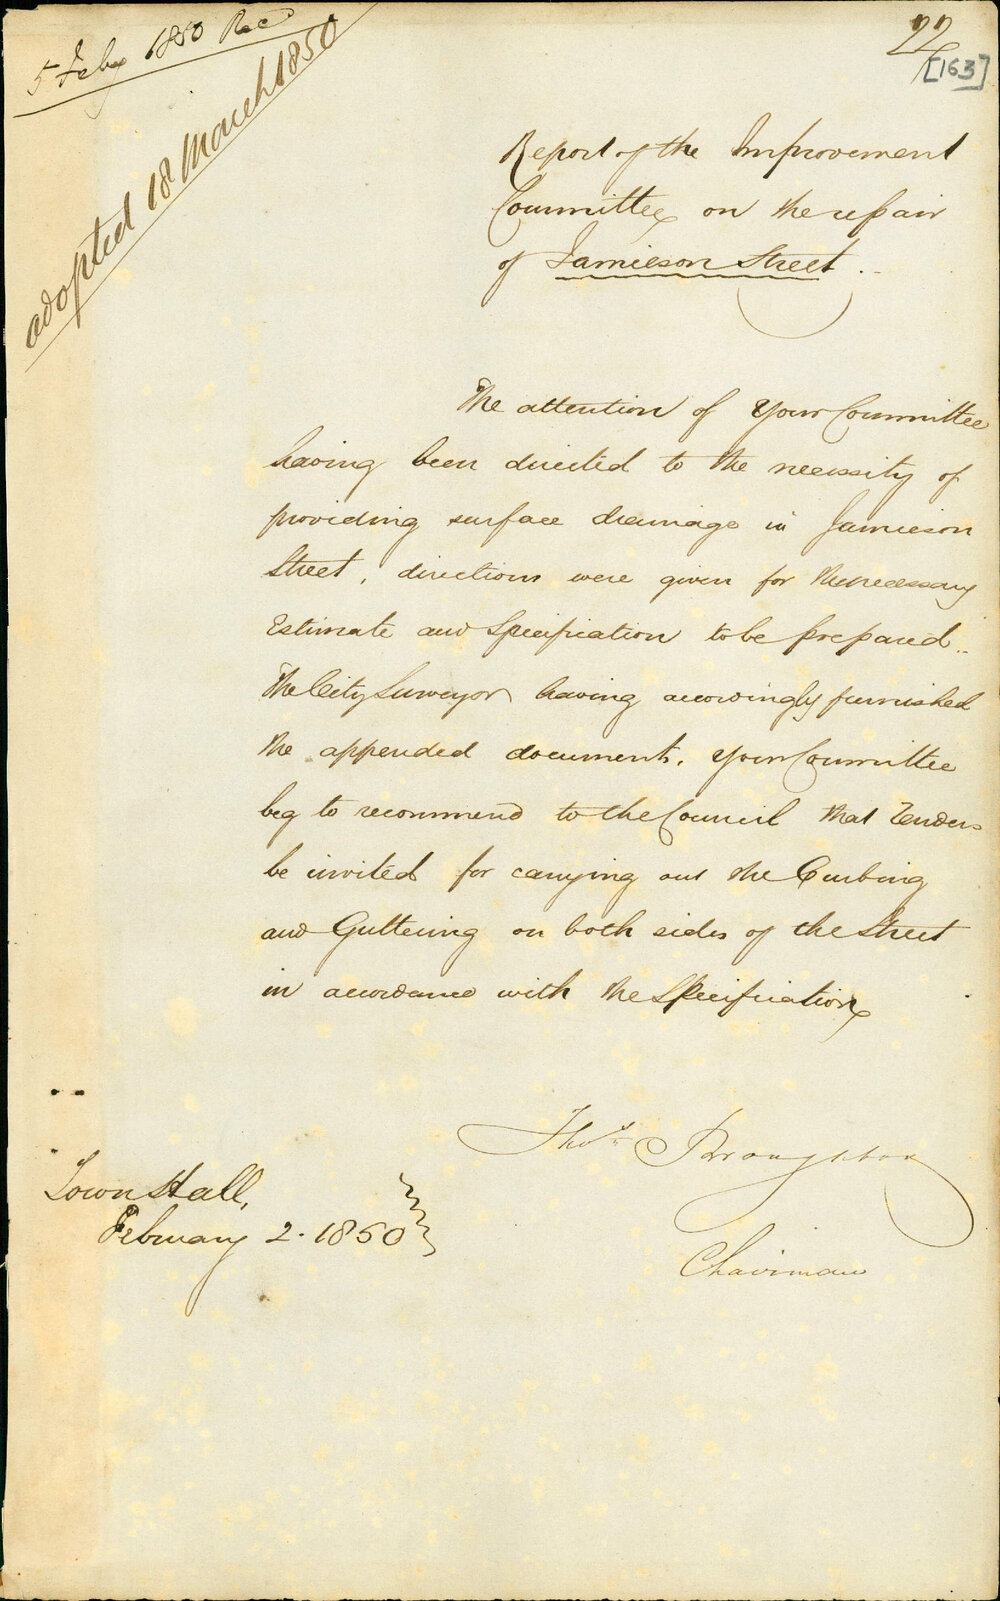 5 Feby 1850 Recd
adopted 18 March 1850
22
[163]
Report of the Improvement
Committee on the repair
of Jamieson Street.
The attention of Your Committee
having been directed to the necessity of
providing surface drainage in Jamieson
Street, directions were given for the necessary
Estimate and Specification to be prepared..
The City Surveyor having accordingly furnished
the appended documents, Your Committee
beg to recommend to the Council that Tenders
be invited for carrying out the Curbing
and Guttering on both sides of the Street
in accordance with the Specification
Thos Broughton
Chairman
Town Hall,
February 2. 1850